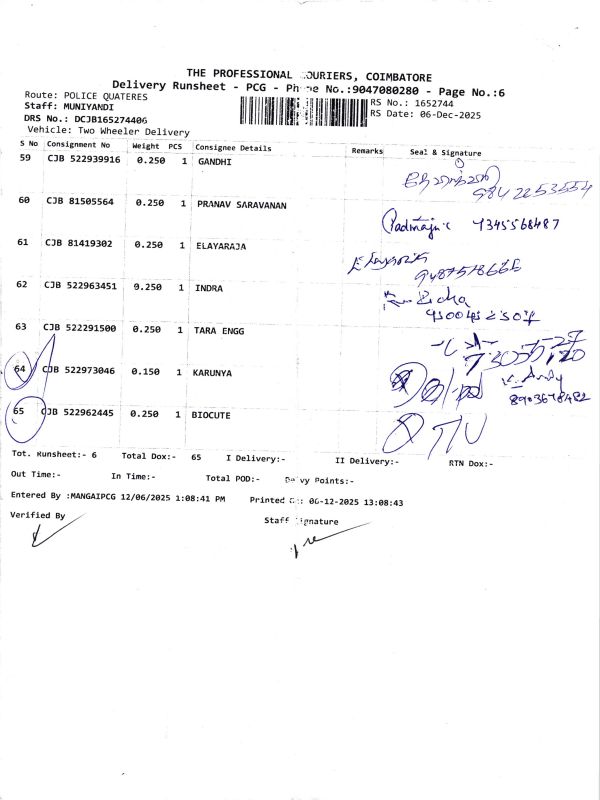 THE PROFESSIONAL COURIERS, COIMBATORE
Delivery Runsheet - PCG - Phone No.:9047080280 - Page No.:6
Route: POLICE QUATERES
Staff: MUNIYANDI
RS No.: 1652744
DRS No.: DCJB165274406
RS Date: 06-Dec-2025
Vehicle: Two Wheeler Delivery
S No Consignment No Weight PCS Consignee Details Remarks Seal & Signature
59 CJB 522939916 0.250 1 GANDHI
9842253554
60 CJB 81505564 0.250 1 PRANAV SARAVANAN
Padmaja 9345568487
61 CJB 81419302 0.250 1 ELAYARAJA
9487578666
62 CJB 522963451 0.250 1 INDRA
63 CJB 522291500 0.250 1 TARA ENGG
64 CJB 522973046 0.150 1 KARUNYA
8903678482
65 CJB 522962445 0.250 1 BIOCUTE
Tot. Runsheet:- 6 Total Dox:- 65 I Delivery:- II Delivery:- RTN Dox:-
Out Time:- In Time:- Total POD:- Points:-
Entered By :MANGAIPCG 12/06/2025 1:08:41 PM Printed On: 06-12-2025 13:08:43
Verified By
Staff Signature